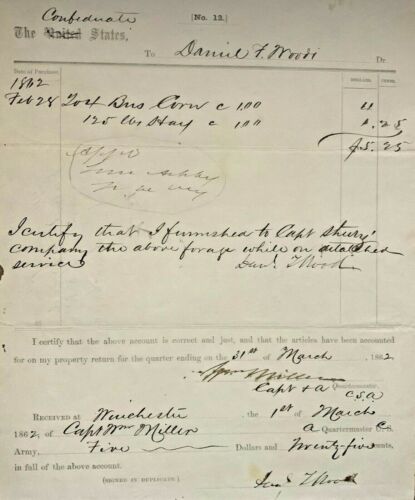 Confederate
[No. 12.]
The United States,
To Daniel F. Wood Dr.
Date of Purchase.
DOLLARS. CENTS.
1862
Feb 28 To 4 Bus Corn c 1,00 4
125 lbs Hay c 1,00 1.25
$5.25
Appd
Ashby
I certify that I furnished to Capt
company the above forage while on detatched
service
Danl. F Wood
I certify that the above account is correct and just, and that the articles have been accounted
for on my property return for the quarter ending on the 31st of March, 1862
Wm Miller
Capt & A Quartermaster,
C.S.A
RECEIVED AT Winchester the 1st of March
1862 of Capt Wm Miller A Quartermaster C.S.
Army, Five Dollars and Twenty five cents,
in full of the above account.
(SIGNED IN DUPLICATE.)
Danl F Wood